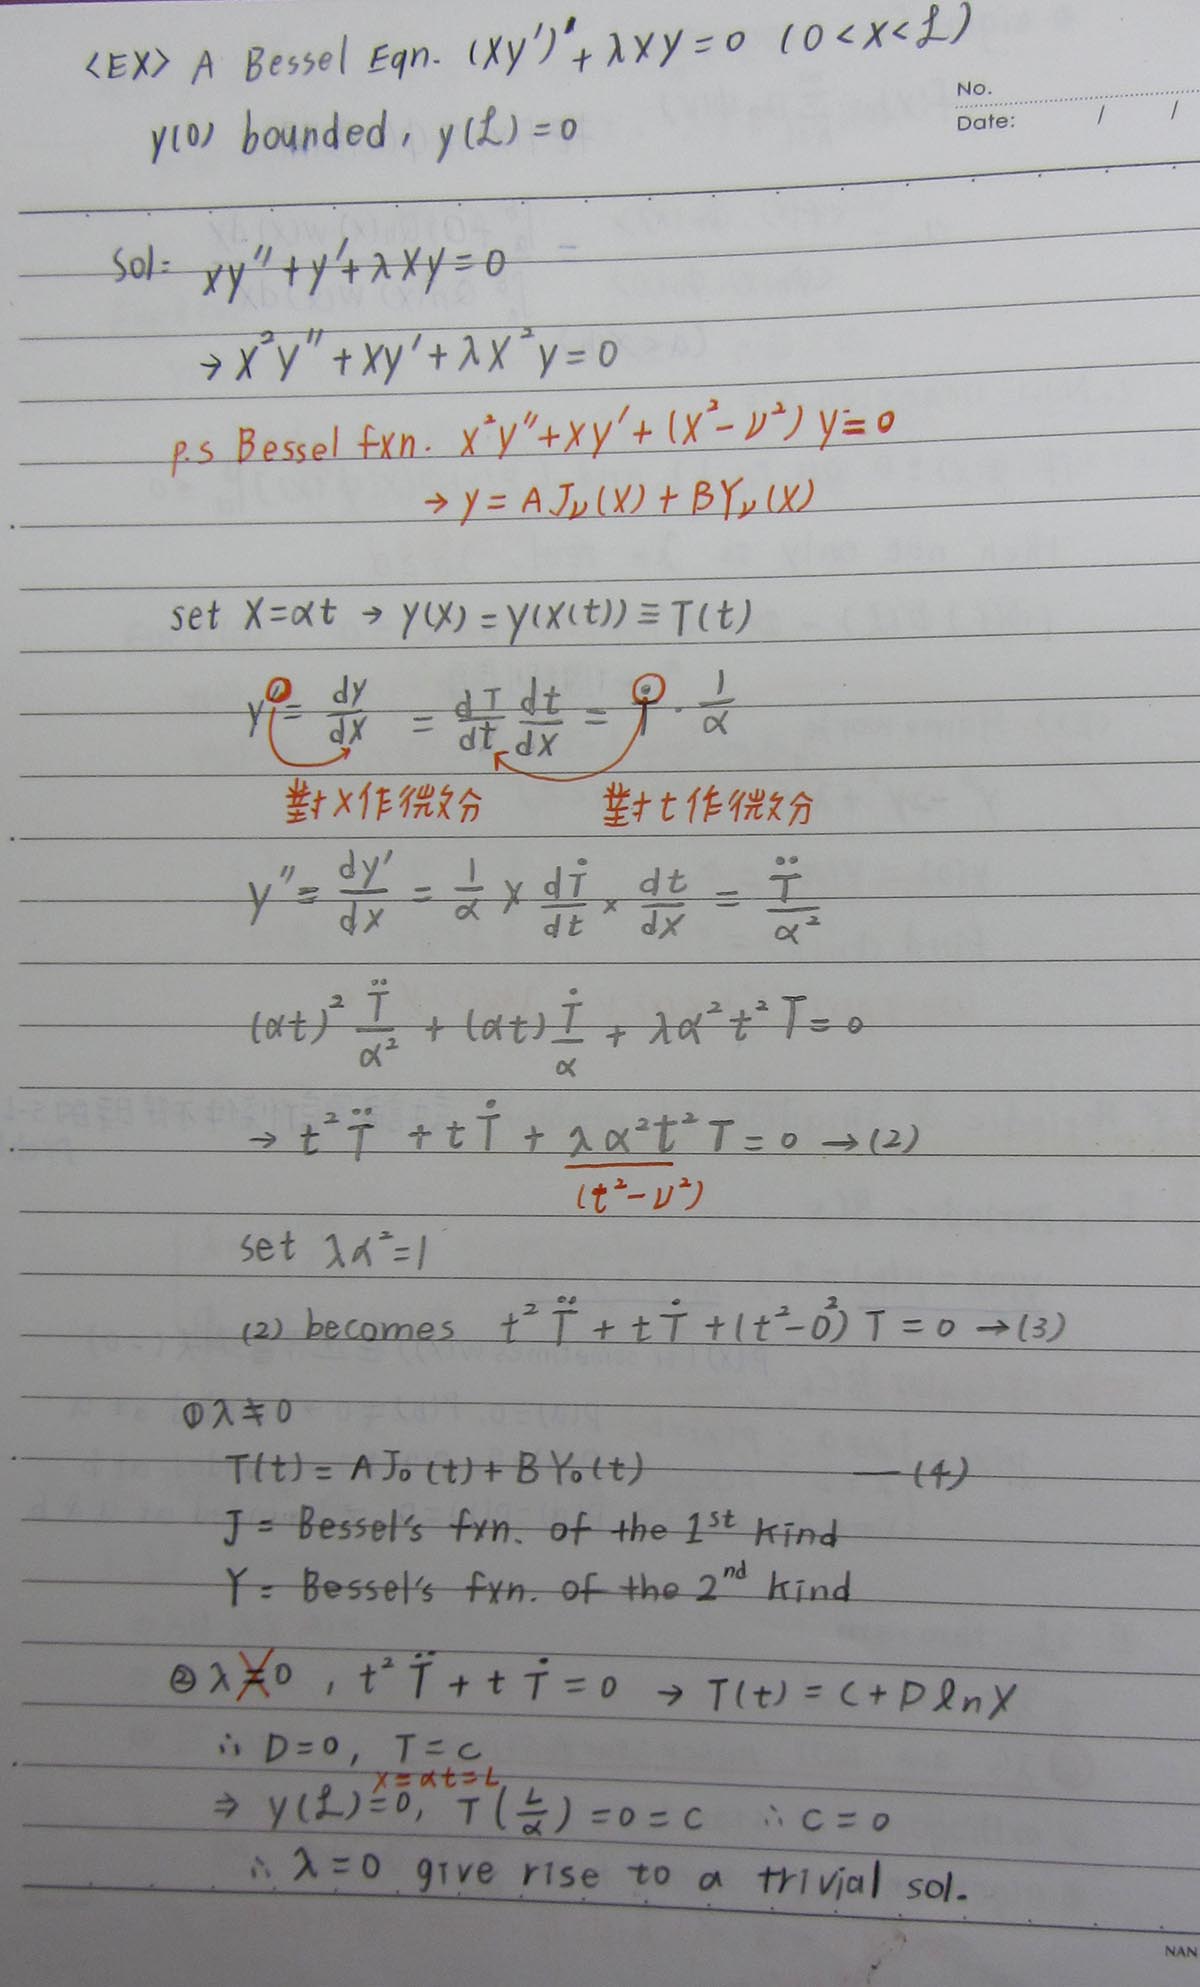 <EX> A Bessel Eqn. (xy')' + λxy = 0 (0 < x < L)
No.
Date: / /
y(0) bounded, y(L) = 0
Sol: xy'' + y' + λxy = 0
→ x²y'' + xy' + λx²y = 0
p.s Bessel fxn. x²y'' + xy' + (x² - ν²) y = 0
→ y = AJν(x) + BYν(x)
set x = αt → y(x) = y(x(t)) ≡ T(t)
y' = dy/dx = dT/dt dt/dx = Ṫ · 1/α
對x作微分 對t作微分
y'' = dy'/dx = 1/α × dṪ/dt × dt/dx = T̈/α²
(αt)² T̈/α² + (αt) Ṫ/α + λα²t²T = 0
→ t²T̈ + tṪ + λα²t²T = 0 → (2)
(t² - ν²)
set λα² = 1
(2) becomes t²T̈ + tṪ + (t² - 0²) T = 0 → (3)
① λ ≠ 0
T(t) = AJ₀(t) + BY₀(t) — (4)
J = Bessel's fxn. of the 1st kind
Y = Bessel's fxn. of the 2nd kind
② λ = 0 , t²T̈ + tṪ = 0 → T(t) = C + D ln X
∴ D = 0, T = C
x = αt = L
⇒ y(L) = 0, T(L/α) = 0 = C ∴ C = 0
∴ λ = 0 give rise to a trivial sol.
NAN